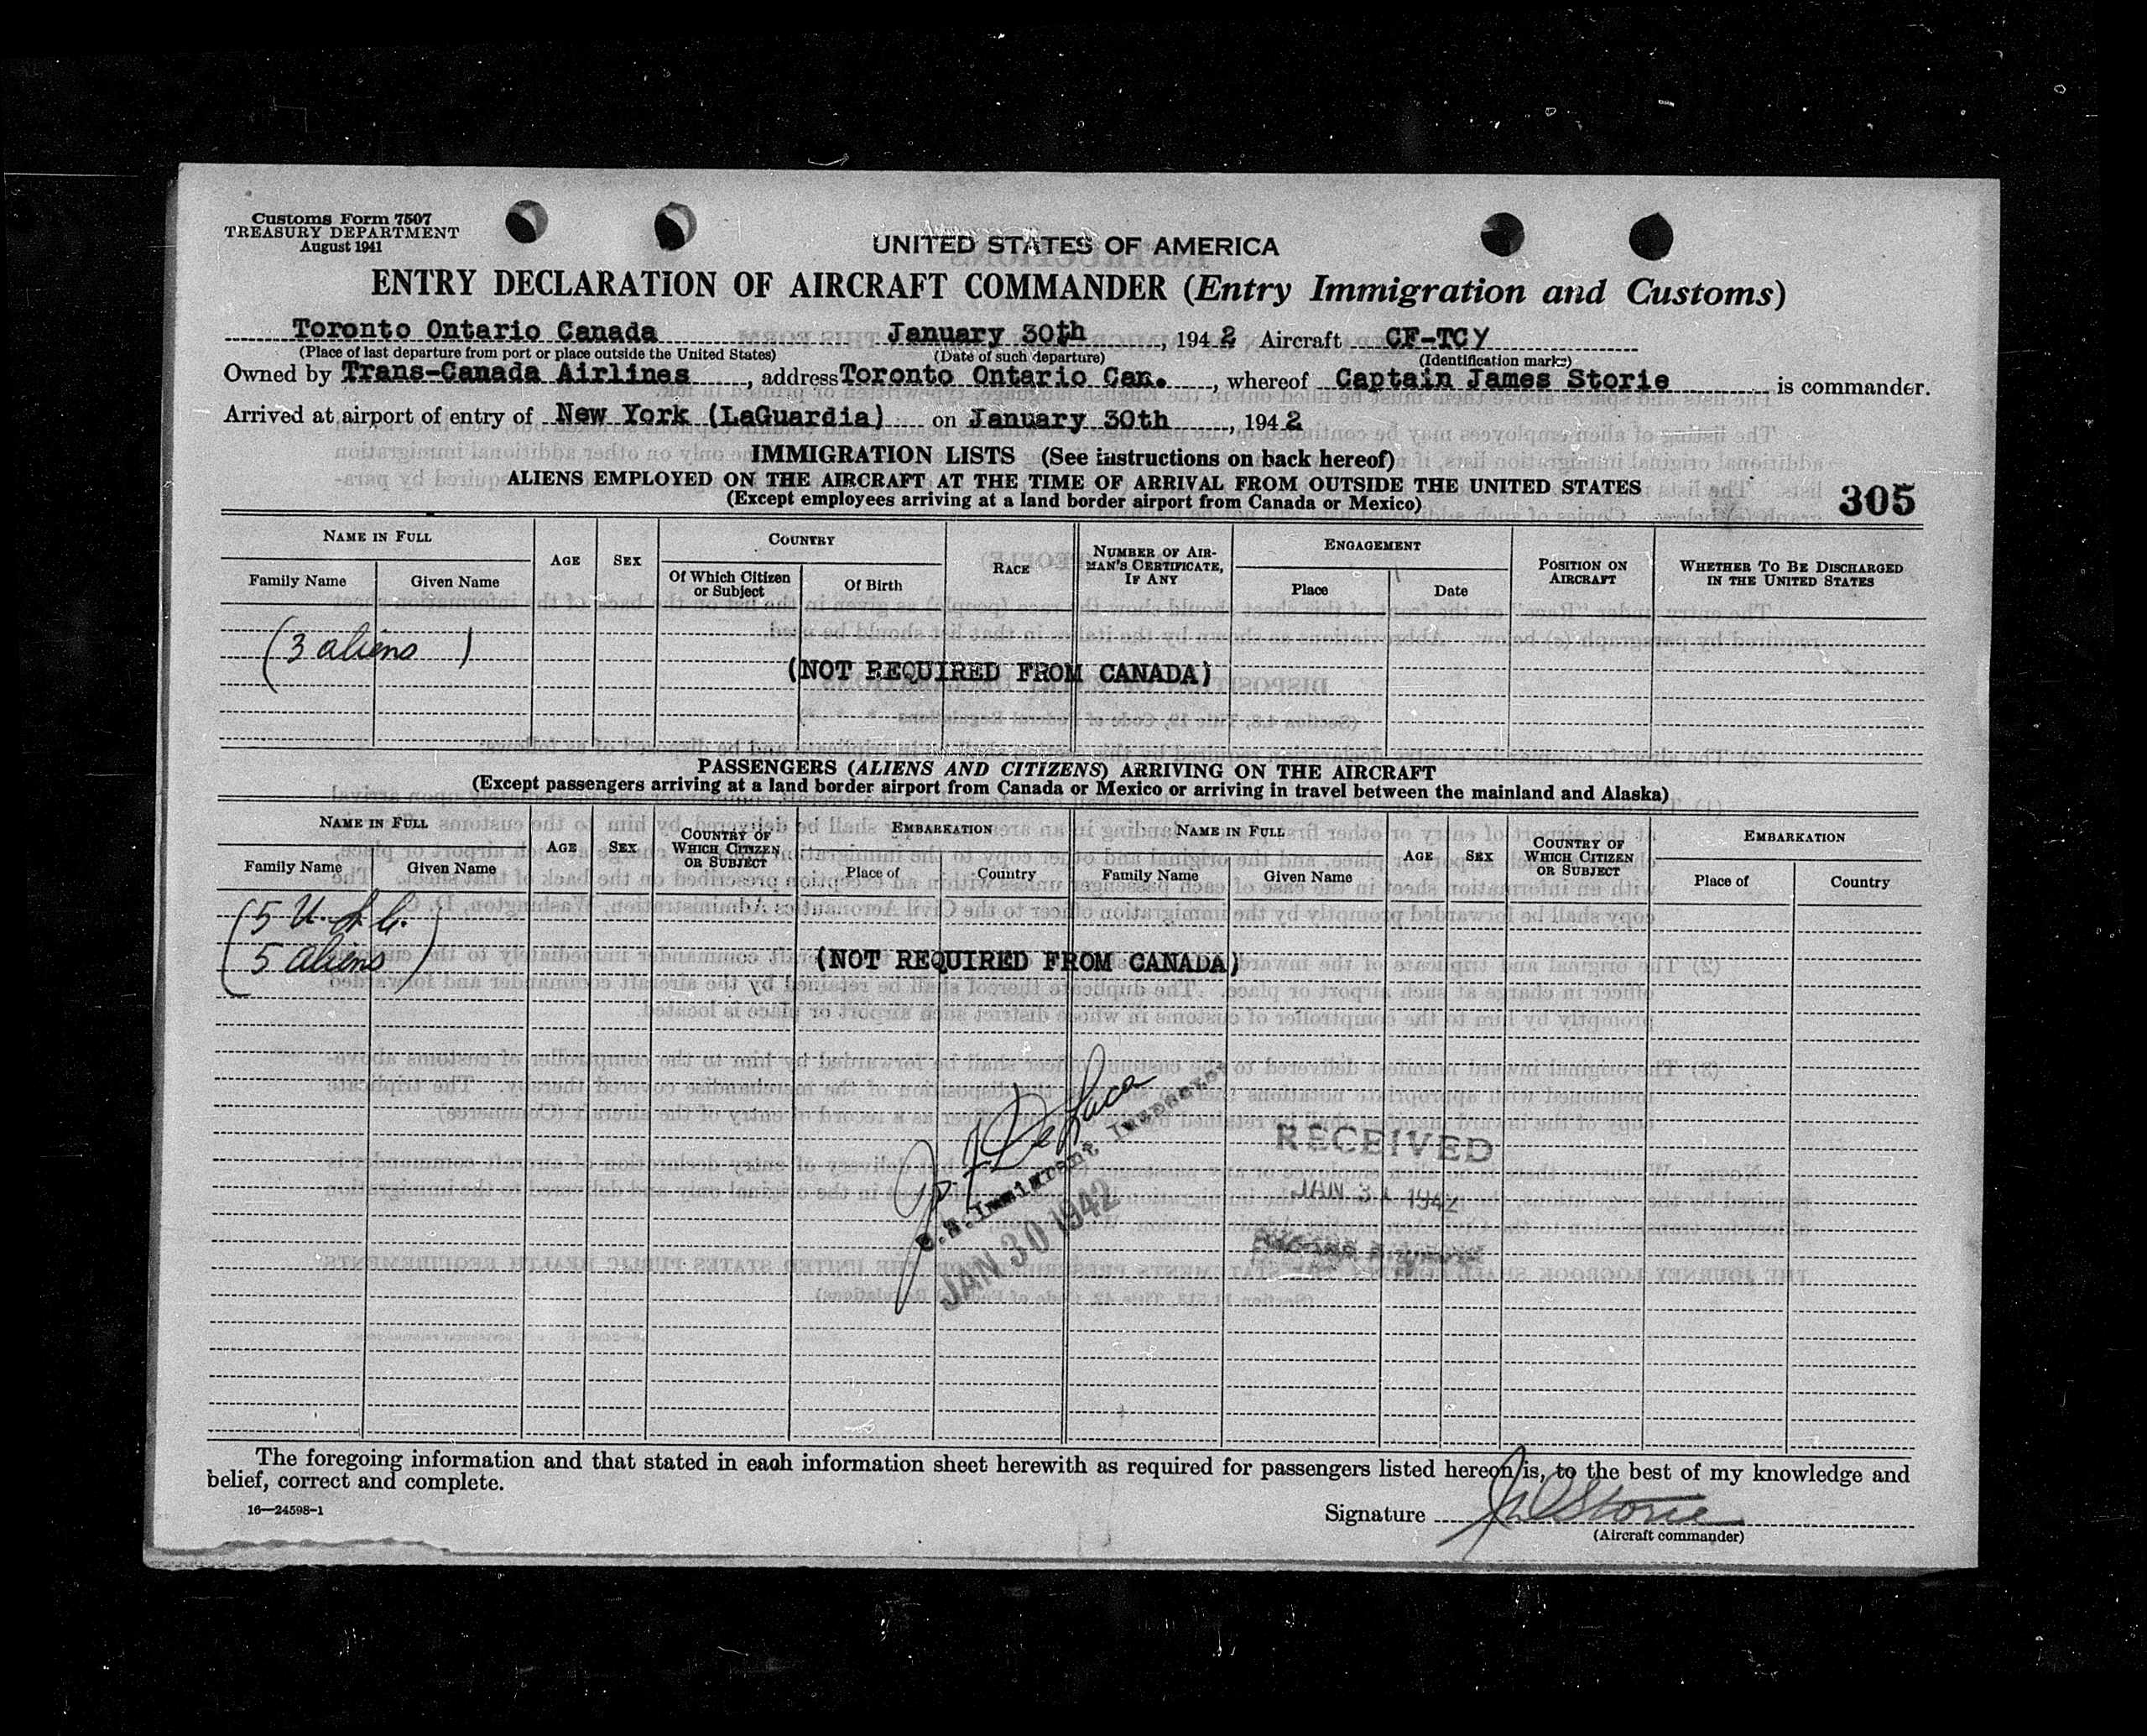 Customs Form 7507
TREASURY DEPARTMENT
August 1941
UNITED STATES OF AMERICA
ENTRY DECLARATION OF AIRCRAFT COMMANDER (Entry Immigration and Customs)
Toronto Ontario Canada January 30th, 1942 Aircraft CF-TCY
(Place of last departure from port or place outside the United States) (Date of such departure) (Identification marks)
Owned by Trans-Canada Airlines, address Toronto Ontario Can., whereof Captain James Storie is commander.
Arrived at airport of entry of New York (LaGuardia) on January 30th, 1942
IMMIGRATION LISTS (See instructions on back hereof)
ALIENS EMPLOYED ON THE AIRCRAFT AT THE TIME OF ARRIVAL FROM OUTSIDE THE UNITED STATES
(Except employees arriving at a land border airport from Canada or Mexico)
305
NAME IN FULL
Family Name Given Name
AGE
SEX
COUNTRY
Of Which Citizen or Subject
Of Birth
RACE
NUMBER OF AIRMAN'S CERTIFICATE, IF ANY
ENGAGEMENT
Place Date
POSITION ON AIRCRAFT
WHETHER TO BE DISCHARGED IN THE UNITED STATES
(3 aliens)
(NOT REQUIRED FROM CANADA)
PASSENGERS (ALIENS AND CITIZENS) ARRIVING ON THE AIRCRAFT
(Except passengers arriving at a land border airport from Canada or Mexico or arriving in travel between the mainland and Alaska)
NAME IN FULL
Family Name Given Name
AGE
SEX
COUNTRY OF WHICH CITIZEN OR SUBJECT
EMBARKATION
Place of Country
NAME IN FULL
Family Name Given Name
AGE
SEX
COUNTRY OF WHICH CITIZEN OR SUBJECT
EMBARKATION
Place of Country
(5 U.S.C.
5 aliens)
(NOT REQUIRED FROM CANADA)
DeLuca
U.S. Immigrant Inspector
JAN 30 1942
RECEIVED
JAN 31 1942
The foregoing information and that stated in each information sheet herewith as required for passengers listed hereon is, to the best of my knowledge and
belief, correct and complete.
16—24598-1
Signature Storie
(Aircraft commander)